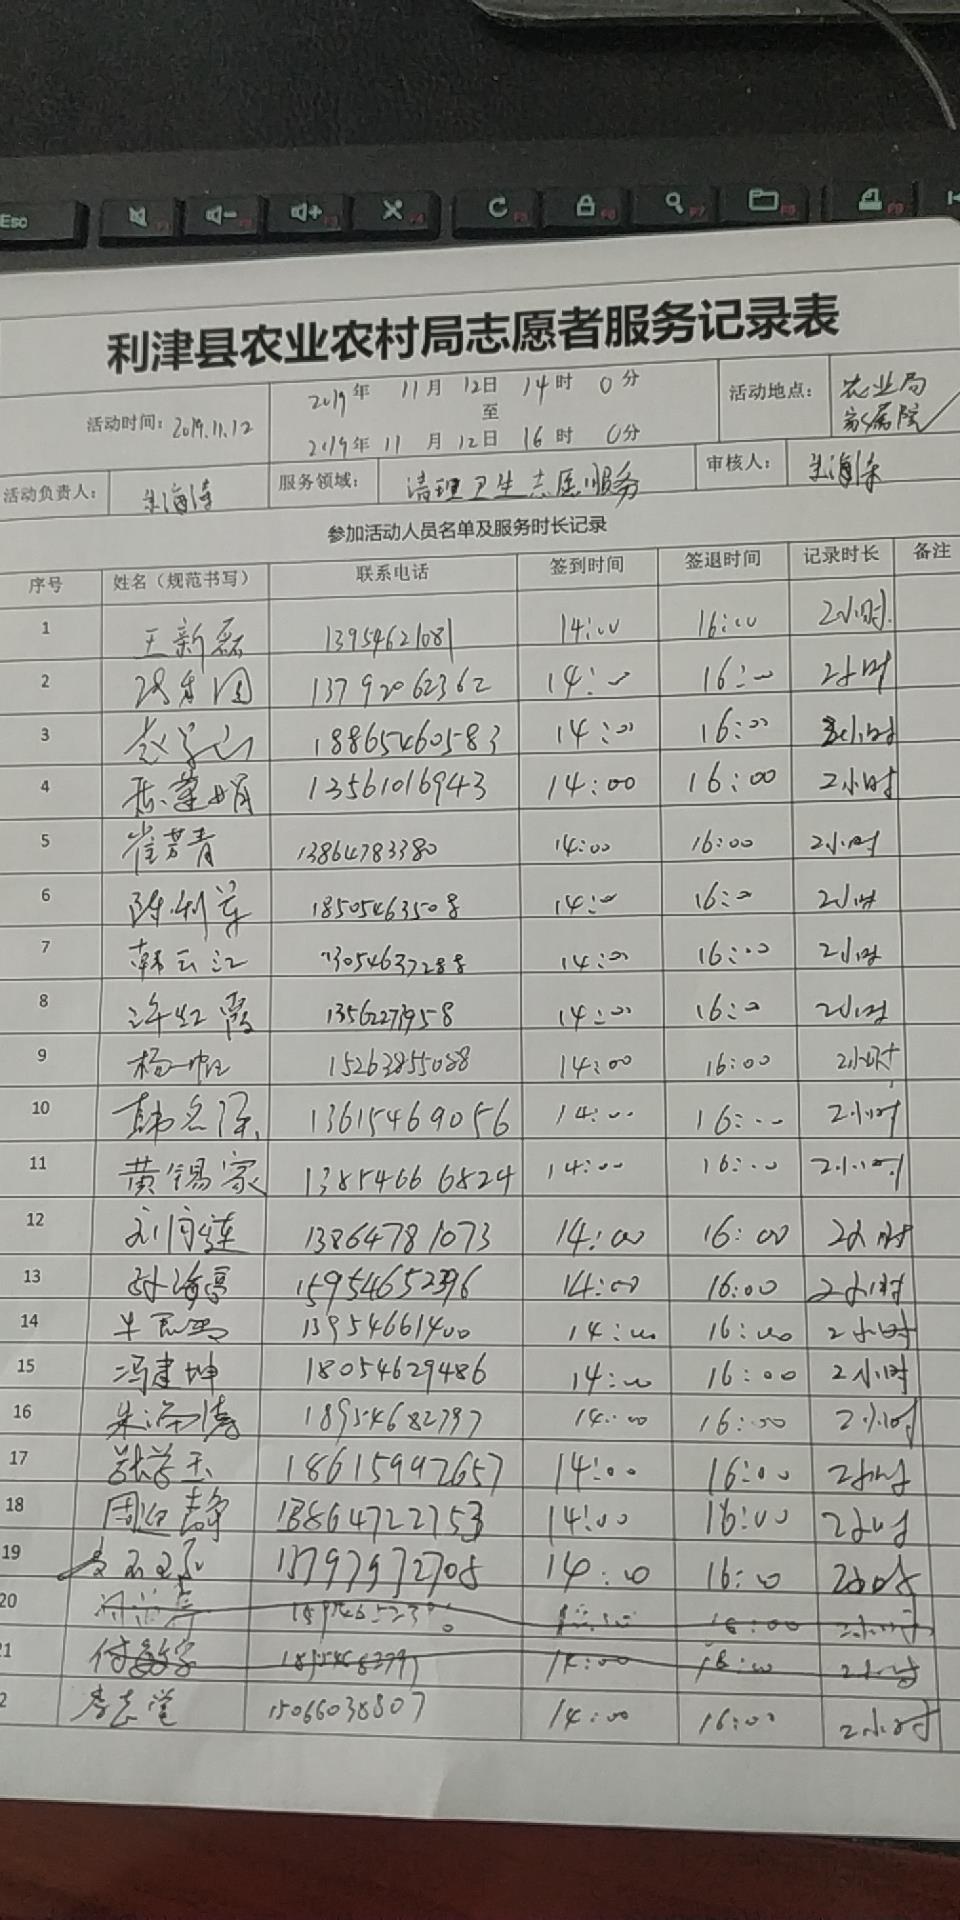 Esc F1 F2 F3 F4 F5 F6 F7 F8 F9
利津县农业农村局志愿者服务记录表
活动时间: 2019.11.12 2019年 11月 12日 14时 0分 至 2019年 11月 12日 16时 0分 活动地点: 农业局家属院
活动负责人: 朱海涛 服务领域: 清理卫生志愿服务 审核人: 朱海涛
参加活动人员名单及服务时长记录
序号 姓名（规范书写） 联系电话 签到时间 签退时间 记录时长 备注
1 王新磊 13954621081 14:00 16:00 2小时
2 13792062362 14:00 16:00 2小时
3 18865460583 14:00 16:00 2小时
4 13561016943 14:00 16:00 2小时
5 崔芳青 13864783380 14:00 16:00 2小时
6 陈利军 18505463508 14:00 16:00 2小时
7 韩云江 14:00 16:00 2小时
8 许红霞 14:00 16:00 2小时
9 杨一帆 15263855088 14:00 16:00 2小时
10 13615469056 14:00 16:00 2小时
11 黄锡家 13854666824 14:00 16:00 2小时
12 13864781073 14:00 16:00 2小时
13 孙海亭 15954652396 14:00 16:00 2小时
14 13954661400 14:00 16:00 2小时
15 冯建坤 18054629486 14:00 16:00 2小时
16 朱海涛 18954682797 14:00 16:00 2小时
17 张学玉 18615992657 14:00 16:00 2小时
18 周迎静 13864722753 14:00 16:00 2小时
19 13797972708 14:00 16:00 2小时
20 16:00 2小时
21 14:00 16:00 2小时
2 李志堂 15066038807 14:00 16:00 2小时